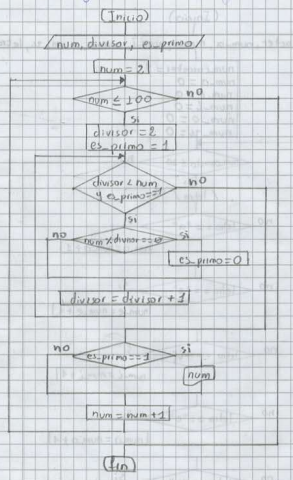 Inicio
num, divisor, es_primo
num=2
num ≤ 100 no
si
divisor=2
es_primo = 1
divisor < num no
y es_primo==1
si
no num % divisor==0 si
es_primo=0
divisor = divisor + 1
no es_primo==1 si
num
num = num+1
fin